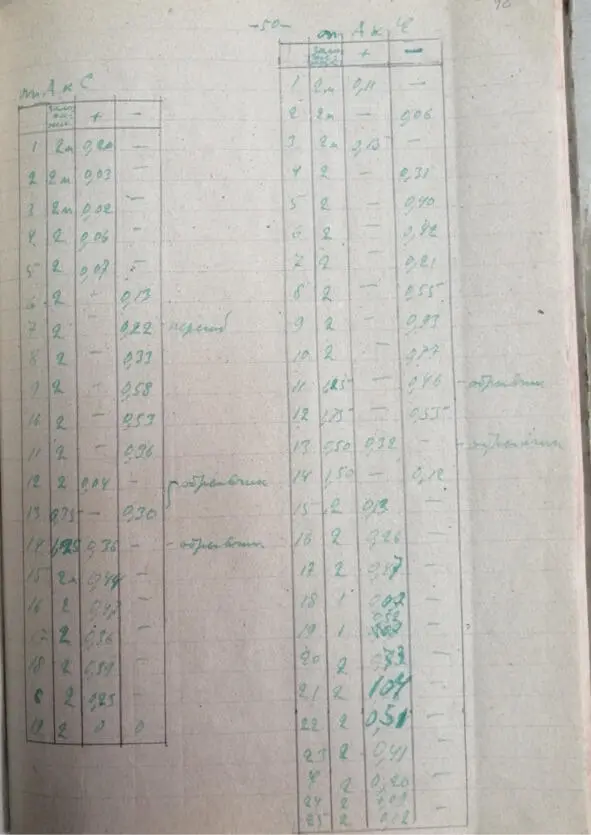 -50-
т. А к С
+ -
1 2м 0,20 -
2 2м 0,03 -
3 2м 0,02 -
4 2 0,06 -
5 2 0,07 -
6 2 - 0,13
7 2 - 0,22 перегиб
8 2 - 0,33
9 2 - 0,58
10 2 - 0,53
11 2 - 0,36
12 2 0,04 -
13 0,75 - 0,30
14 1,25 0,36 -
15 2м 0,44 -
16 2 0,47 -
17 2 0,36 -
18 2 0,59 -
С 2 0,25
19 2 0 0
т. А к Ч
+ -
1 2м 0,11 -
2 2м - 0,06
3 2м 0,15 -
4 2 - 0,31
5 2 - 0,40
6 2 - 0,42
7 2 - 0,21
8 2 - 0,55
9 2 - 0,93
10 2 - 0,77
11 1,25 - 0,46
12 1,75 - 0,55
13 0,50 0,32 -
14 1,50 - 0,12
15 2 0,13 -
16 2 0,26 -
17 2 0,47 -
18 1
19 1
20 2
21 2 1,04 -
22 2 0,51 -
23 2 0,41 -
Ч 2 0,20 -
24 2
25 2 0,12 -